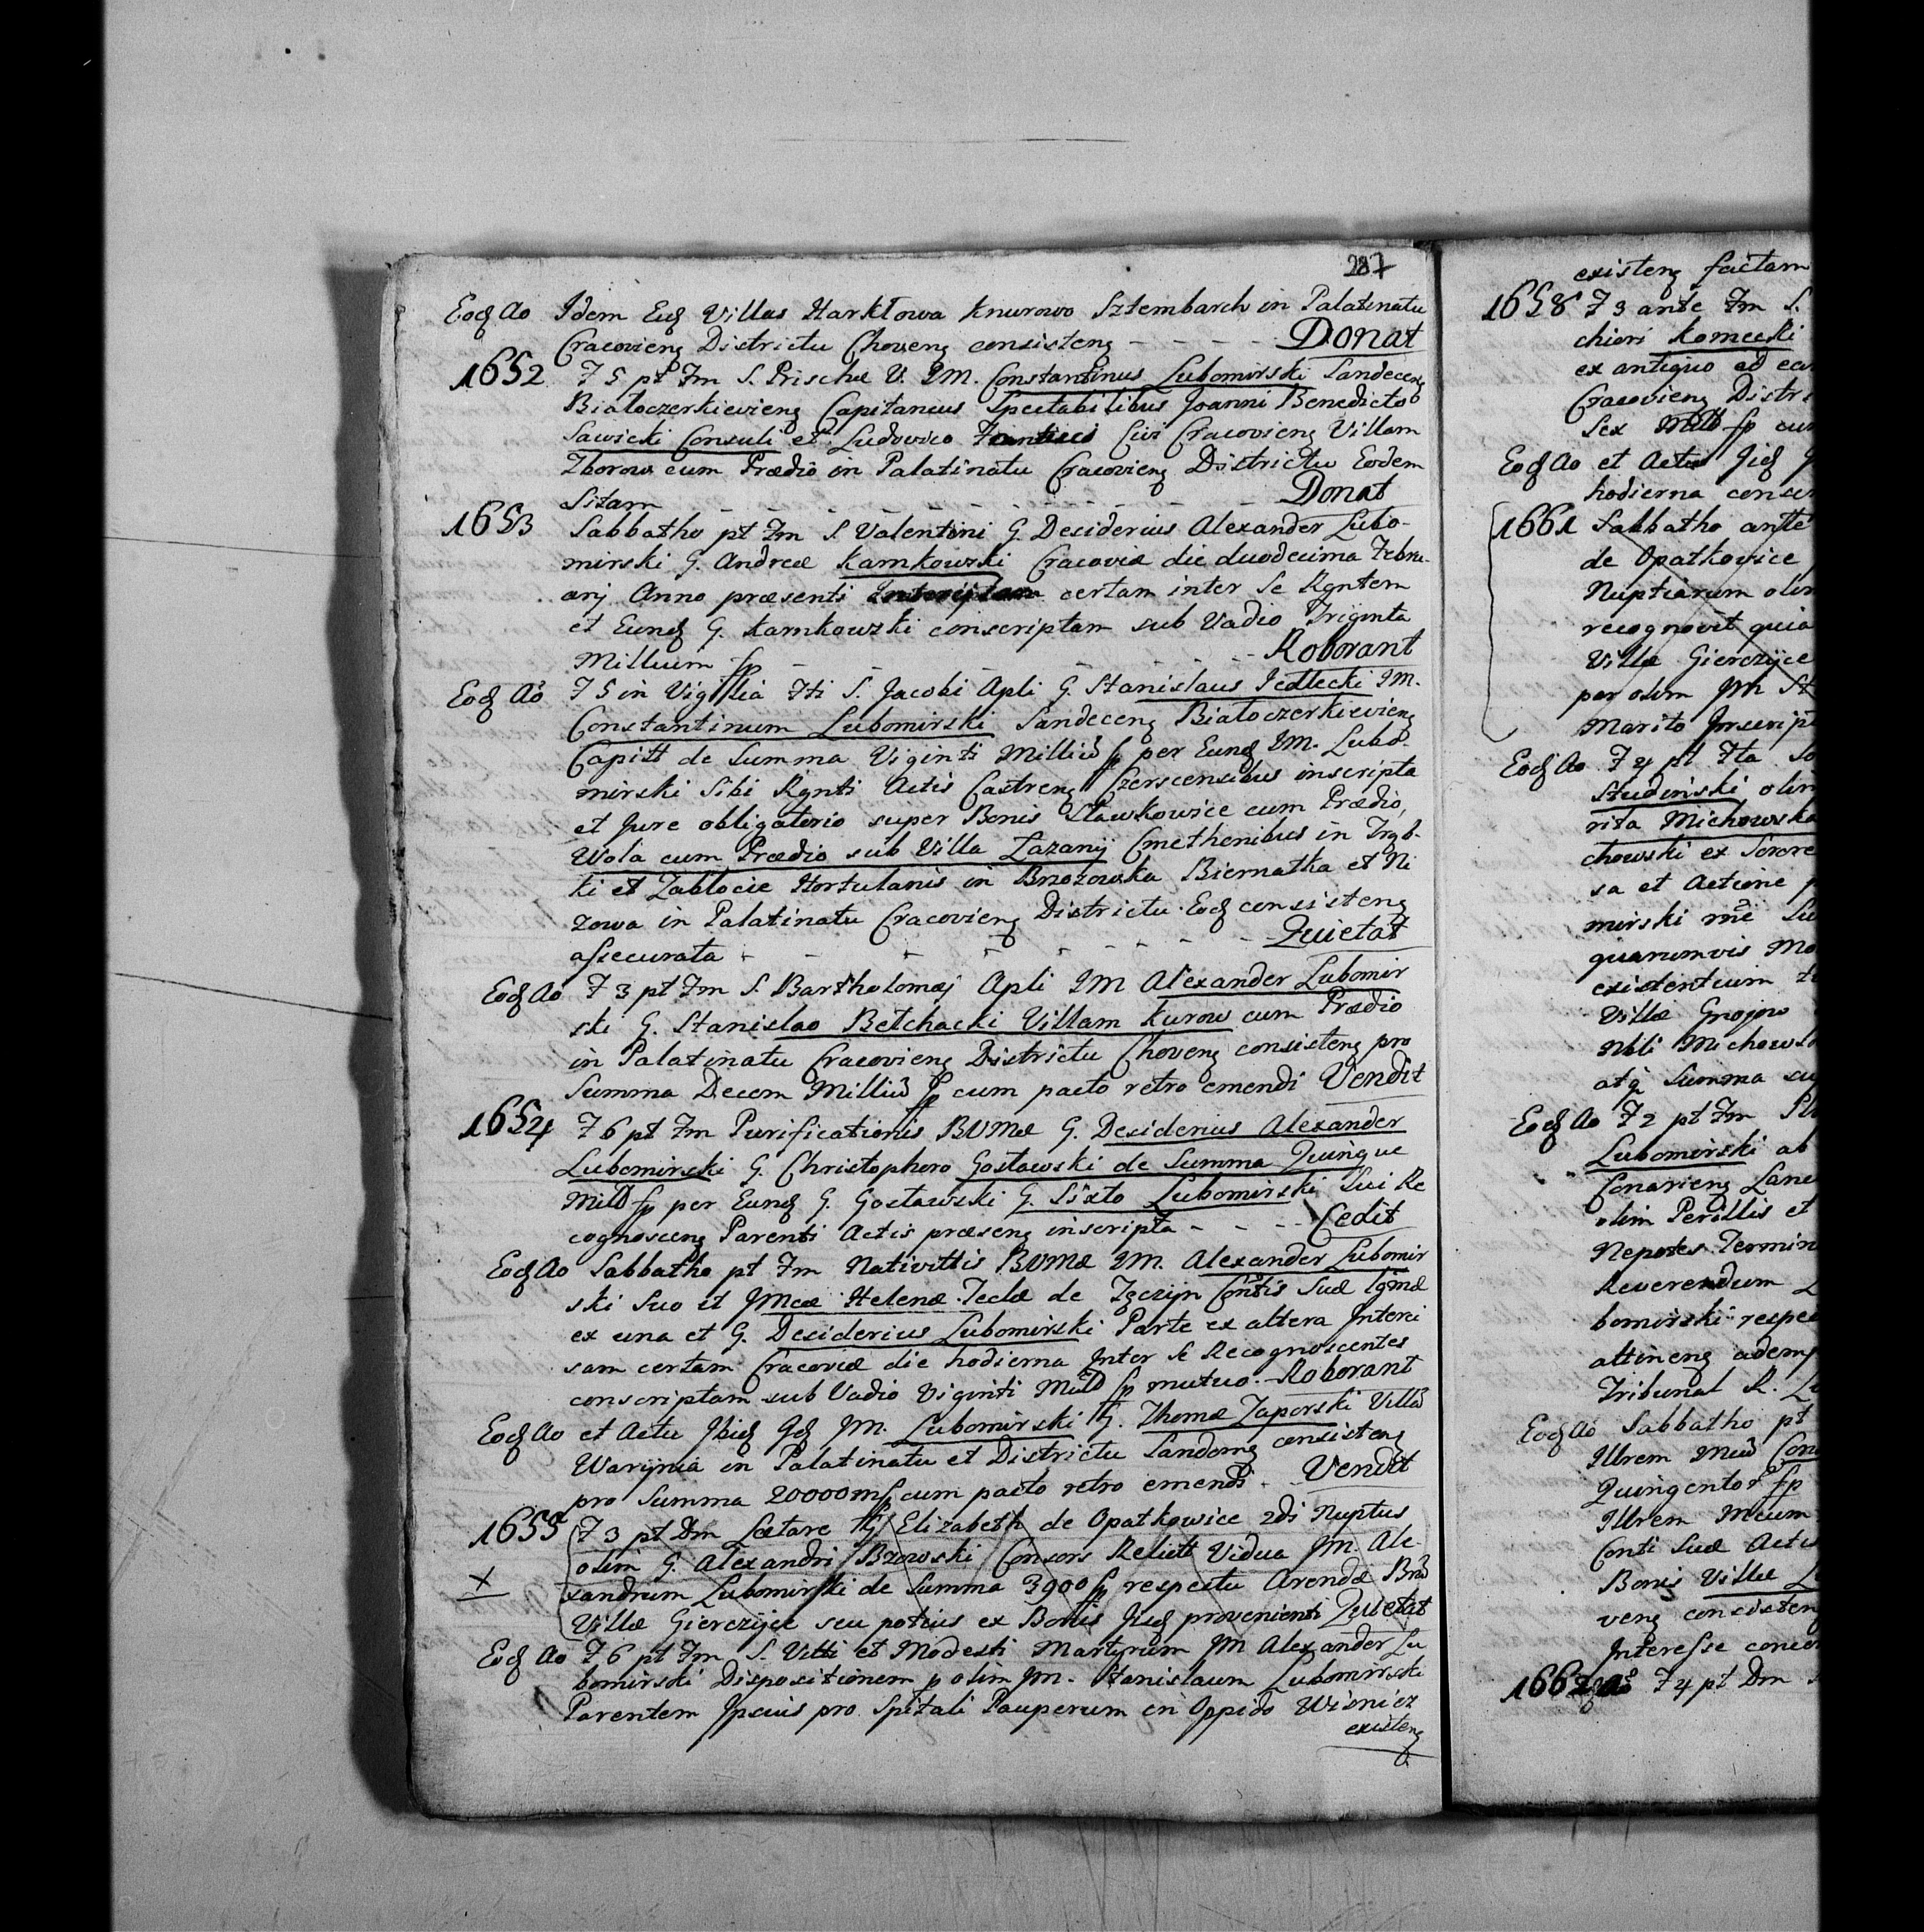 287
Eodq Ao Idem Eidq Villas Harktowa Knurowo Sztembarch in Palatinatu
Cracovienq Districtu Chovenq consistenq - - - - Donat
1652 F 5 pt Fm S. Priscae V. IM. Constantinus Lubomirski Sandecenq
Białoczerkievienq Capitaneus Spectabilibus Joanni Benedicto
Sawicki Consuli et Ludovico Civi Cracovienq Villam
Zborow cum Prædio in Palatinatu Cracovienq Districtu Eodem
Sitam - - - - - - - - - Donat
1653 Sabbatho pt Fm S. Valentini G. Desiderius Alexander Lubo-
mirski G. Andreæ Karnkowski Cracoviæ die duodecima Febru-
arij Anno præsenti certam inter Se Rgntem
et Eundq G. Karnkowski conscriptam sub Vadio Triginta
Millium fp - - - - - - - Roborant
Eodq Ao F 5 in Vigilia Fti S. Jacobi Apli G. Stanislaus Jedlecki IM.
Constantinum Lubomirski Sandecenq Białoczerkievienq
Capitt de Summa Viginti Milliu fp per Eundq IM. Lubo-
mirski Sibi Rgnti Actis Castrenq Czerscensibus inscripta
et Jure obligatorio super Bonis Sławkowice cum Prædio,
Wola cum Prædio sub Villa Łazany Cmethonibus in Trąb-
ki et Zabłocie Hortulanis in Brzozowka Biernatka et Ni
zowa in Palatinatu Cracovienq Districtu Eodq consistenq
assecurata - - - - - - - Quietat
Eodq Ao F 3 pt Fm S. Bartholomæj Apli IM Alexander Lubomir
ski G. Stanislao Bełchacki Villam Kurow cum Prædio
in Palatinatu Cracovienq Districtu Chovenq consistenq pro
Summa Decem Milliu fp cum pacto retro emendi Vendit
1654 F 6 pt Fm Purificationis BVMæ G. Desiderius Alexander
Lubomirski G. Christophoro Gosławski de Summa Quinque
Mill fp per Eundq G. Gosławski G. Sixto Lubomirski Sui Re
cognoscenq Parenti Actis præsenq inscripta - - - - Cedit
Eodq Ao Sabbatho pt Fm Nativittis BVMæ IM. Alexander Lubomir
ski Suo et JMcæ Helenæ Teclæ de Tęczyn Contis Suæ Ignæ
ex una et G. Desiderius Lubomirski Parte ex altera Interci
sam certam Cracoviæ die hodierna Inter Se Recognoscentes
conscriptam sub Vadio Viginti Mill fp mutuo. Roborant
Eodq Ao et Actu Ibidq Idq JM. Lubomirski G. Thomæ Zaporski Villa
Warynia in Palatinatu et Districtu Sandomq consistenq
pro Summa 20000 mfp cum pacto retro emendi - Vendit
1655 F 3 pt Dm Lætare G. Elizabeth de Opatkowice 2di Nuptus
olim G. Alexandri Brzowski Consors Relictt Vidua JM. Ale-
X xandrum Lubomirski de Summa 3900 fp respectu Arendæ
Villæ Gierczyce seu potius ex Bonis Iisdq provenienti Quietat
Eodq Ao F 6 pt Fm S. Vitti et Modesti Martyrum JM Alexander Lu
bomirski Dispositionem p olim JM. Stanislaum Lubomirski
Parentem Ipsius pro Spitali Pauperum in Oppido Wisnicz
existenq
existenq factam
1658 F 3 ante Fm S.
chiori Komecki
ex antiquo ad
Cracovienq Distri
Sex Mill fp cum
Eodq Ao et Actu
hodierna
1661 Sabbatho ante
de Opatkowice
Nuptiarum olim
recognovit quia
Villæ Gierczyce
per olim JM St
Marito Inscript
Eodq Ao F 4 pt Fta
Studinski olim
rita Michowska
chowski ex Sorore
sa et Actione
mirski
quarumvis
existentium
Villæ Gnojow
Nbli Michowsk
atq Summa
Eodq Ao F 2 pt Fm
Lubomirski ab
olim Perillis et
Nepotes Termin
Reverendum
bomirski respec
attinenq
Tribunal R.
Eodq Ao Sabbatho pt
Illrem
Quingentor fp
Illrem Mcum
Conti Suæ Actis
Bonis Villæ
venq consisten
Interesse
1662 Ao F 4 pt Dm